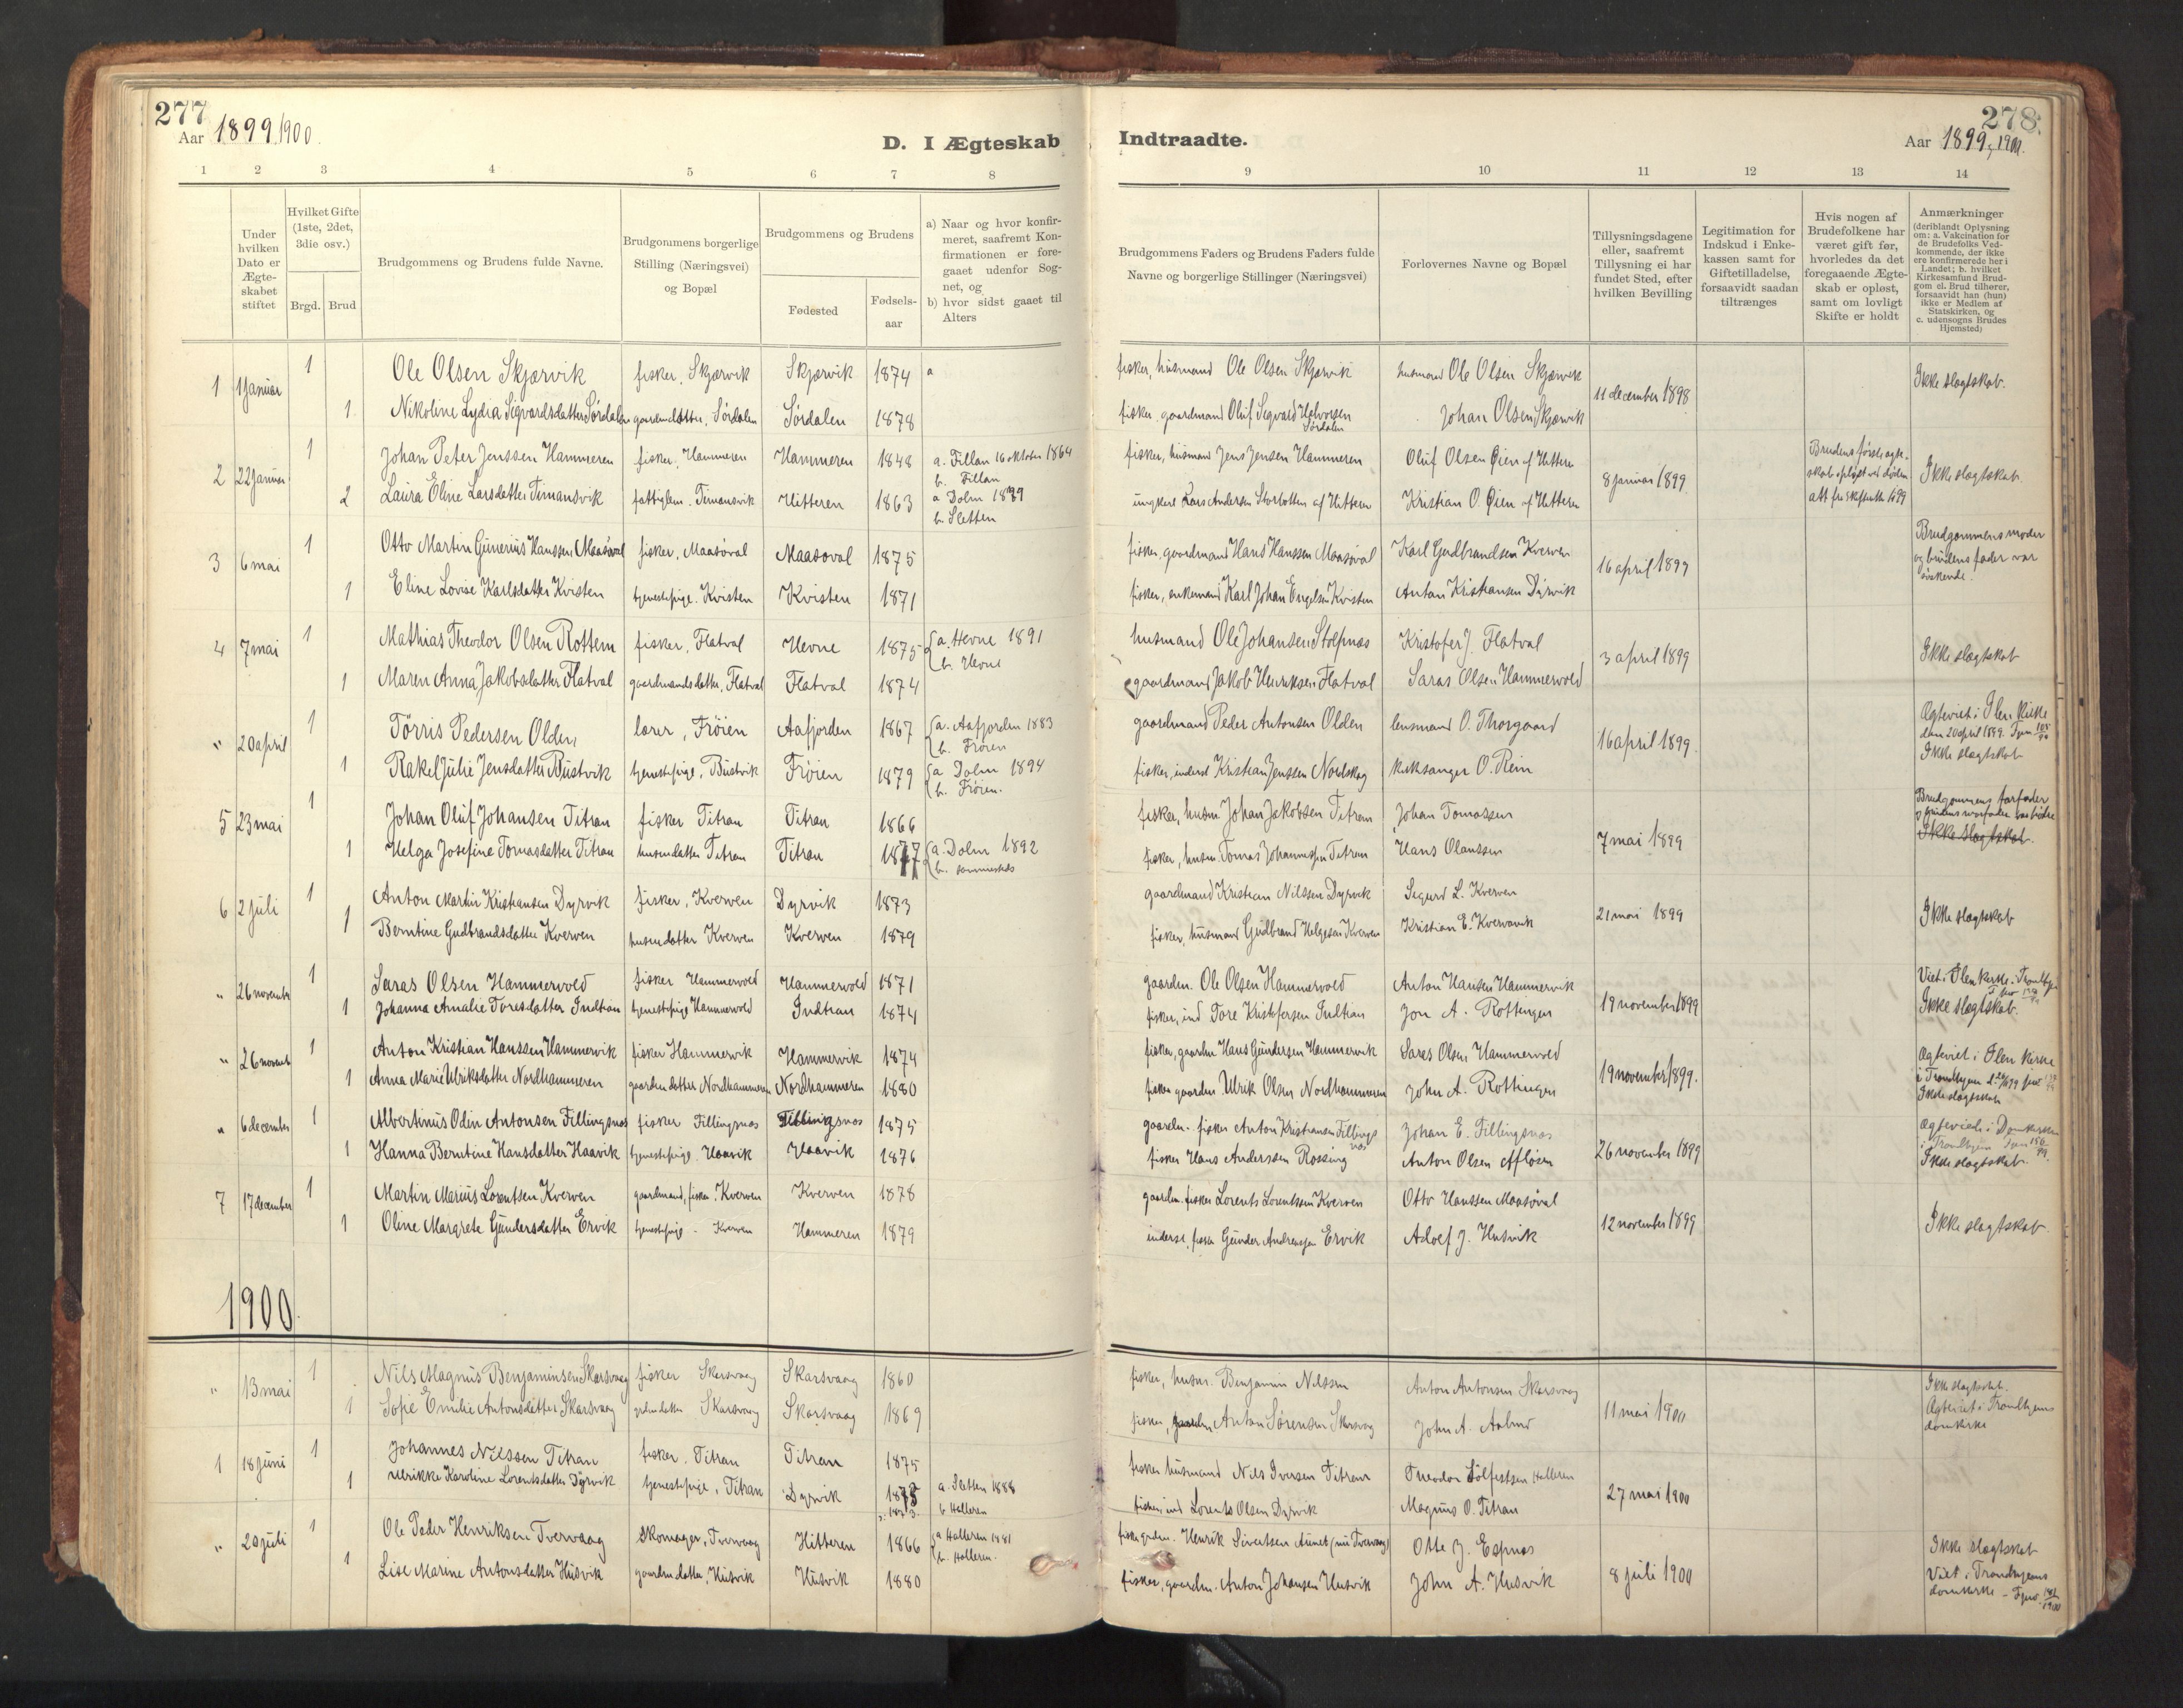 277
Aar 1899, 1900.
D. I Ægteskab
1 2 3 4 5 6 7 8
Under hvilken Dato er Ægteskabet stiftet
Hvilket Gifte (1ste, 2det, 3die osv.)
Brgd. Brud
Brudgommens og Brudens fulde Navne.
Brudgommens borgerlige Stilling (Næringsvei) og Bopæl
Brudgommens og Brudens
Fødested
Fødsels-aar
a) Naar og hvor konfir-
meret, saafremt Kon-
firmationen er fore-
gaaet udenfor Sog-
net, og
b) hvor sidst gaaet til
Alters
1 1 januar 1 Ole Olsen Skjærvik fisker, Skjærvik Skjærvik 1874 a
1 Nikoline Lydia Sigvardsdatter Sørdalen gaardmdatter, Sørdalen Sørdalen 1878
2 22 januar 1 Johan Peter Jenssen Hammeren fisker, Hammeren Hammeren 1848 a. Fillan 16 oktober 1864
b. Fillan
2 Laura Eline Larsdatter Timansvik fattiglem. Timansvik Hitteren 1863 a Dolm 1879
b. Sletten
3 6 mai 1 Otto Martin Gunerius Hanssen Maasøval fisker, Maasøval Maasøval 1875
1 Eline Lovise Karlsdatter Kvisten tjenestepige. Kvisten Kvisten 1871
4 7 mai 1 Mathias Theodor Olsen Rottem fisker, Flatval Hevne 1875 a. Hevne 1891
b. Hevne
1 Maren Anna Jakobsdatter Flatval gaardmandsdatter, Flatval Flatval 1874
" 20 april 1 Tørris Pedersen Olden, lærer, Frøien Aafjorden 1867 a. Aafjorden 1883
b. Frøien
1 Rakel Julie Jensdatter Bustvik tjenestepige, Bustvik Frøien 1879 a Dolm 1894
b. Frøien.
5 23 mai 1 Johan Oluf Johansen Titran fisker Titran Titran 1866
1 Helga Josefine Tomasdatter Titran husmdatter Titran Titran 1877 a. Dolm 1892
b. sammesteds
6 2 juli 1 Anton Martin Kristiansen Dyrvik fisker, Kverven Dyrvik 1873
1 Berntine Gudbrandsdatter Kverven husmdatter Kverven Kverven 1879
" 26 november 1 Saras Olsen Hammervold fisker Hammervold Hammervold 1871
1 Johanna Amalie Toresdatter Indtian tjenestepige Hammervold Indtian 1874
" 26 novemb 1 Anton Kristian Hanssen Hammervik fisker Hammervik Hammervik 1874
1 Anna Marie Ulriksdatter Nordhammeren gaardmdatter Nordhammeren Nordhammeren 1880
" 6 december 1 Albertinus Odin Antonsen Fillingsnæs fisker Fillingsnæs Fillingsnæs 1875
1 Hanna Berntine Hansdatter Haavik tjenestepige. Haavik Haavik 1876
7 17 december 1 Martin Marius Lorentsen Kverven gaardmand, fisker, Kverven Kverven 1878
1 Oline Margrete Gundersdatter Ervik tjenestepige - Kverven Hammeren 1879
1900.
" 13 mai 1 Nils Magnus Benjaminsen Skarsvaag fisker Skarsvaag Skarsvaag 1860
1 Sofie Emilie Antonsdatter Skarsvaag Skarsvaag Skarsvaag 1869
1 18 juni 1 Johannes Nilssen Titran fisker, Titran Titran 1875
1 Ulrikke Karoline Lorentsdatter Dyrvik tjenestepige, Titran Dyrvik 1875 a. Sletten 1888
b Halleren
" 20 juli 1 Ole Peder Henriksen Tvervaag Skomager, Tvervaag Hitteren 1866 a Halleren 1881
b. Halleren.
1 Lise Marine Antonsdatter Husvik gaardmdatter, Husvik Husvik 1880
278.
Indtraadte.
Aar 1899, 1900.
9 10 11 12 13 14
Brudgommens Faders og Brudens Faders fulde
Navne og borgerlige Stillinger (Næringsvei)
Forlovernes Navne og Bopæl
Tillysningsdagene
eller, saafremt
Tillysning ei har
fundet Sted, efter
hvilken Bevilling
Legitimation for
Indskud i Enke-
kassen samt for
Giftetilladelse,
forsaavidt saadan
tiltrænges
Hvis nogen af
Brudefolkene har
været gift før,
hvorledes da det
foregaaende Ægte-
skab er opløst,
samt om lovligt
Skifte er holdt
Anmærkninger
(deriblandt Oplysning
om: a. Vakcination for
de Brudefolks Ved-
kommende, der ikke
ere konfirmerede her i
Landet; b. hvilket
Kirkesamfund Brud-
gom el. Brud tilhører,
forsaavidt han (hun)
ikke er Medlem af
Statskirken, og
c. udensogns Brudes
Hjemsted)
fisker, husmand Ole Olsen Skjærvik husmand Ole Olsen Skjærvik 11 december 1898 Ikke slægtskab.
fisker, gaardmand Oluf Segvald Halvorsen Sørdalen Johan Olsen Skjærvik
fisker, husmand Jens Jensen Hammeren Oluf Olsen Øien af Hitteren 8 januar 1899. Brudens første ægte-
skab opløst ved døden Ikke slægtskab.
ungkarl Lars Andersen af Hitteren Kristian O. Øien af Hitteren
fisker, gaardmand Hans Hanssen Maasøval Karl Gudbrandsen Kverven 16 april 1899 Brudgommens moder
og brudens fader var
søskende.
fisker, enkemand Karl Johan Engelsen Kvisten Anton Kristiansen Dyrvik
husmand Ole Johansen Stolpnæs Kristofer J. Flatval 3 april 1899 Ikke slægtskab
gaardmand Jakob Henriksen Flatval Saras Olsen Hammervold
gaardmand Peder Antonsen Olden lensmand O. Thorgaard 16 april 1899. Ægteviet i Ilen kirke
den 20 april 1899.
Ikke slægtskab
fisker, inderst Kristian Jenssen Nordskag kirksanger O. Rein
fisker, husm Johan Jakobsen Titran Johan Tomassen 7 mai 1899 Brudgommens farfader
og brudens morfader var brødre
Ikke slægtskab.
fisker, husm. Tomas Johannessen Titran Hans Olaussen
gaardmand Kristian Nilssen Dyrvik Segurd L. Kverven 21 mai 1899 Ikke slægtskab
fisker, husmand Gudbrand Helgesen Kverven Kristian E. Kvervavik
gaardm. Ole Olsen Hammervold Anton Hansen Hammervik 19 november 1899 Viet i Ilen kirke i Trondhjem
Ikke slægtskab.
fisker, ind Tore Kristofersen Indtian Jon A. Rottingen
fisker, gaardm Hans Gundersen Hammervik Saras Olsen Hammervold 19 november 1899. Ægteviet i Ilen kirke
i Trondhjem
Ikke slægtskab
fisker gaardm Ulrik Olsen Nordhammeren John A. Rottingen
gaardm. fisker Anton Kristiansen Fillingsnæs Johan E. Fillingsnæs 26 november 1899 Ægteviede i Domkirken
i Trondhjem
Ikke slægtskab.
fisker Hans Anderssen Rossing Anton Olsen Afløsen
gaardm. fisker Lorents Lorentssen Kverven Otto Hanssen Maasøval 12 november 1899 Ikke slægtskab.
inderst, fisker Gunder Andreassen Ervik Adolf J. Husvik
fisker, husm. Benjamin Nilssen Anton Antonsen Skarsvaag 11 mai 1900 Ikke slægtskab.
Ægteviet i Trondhjems
domkirke
fisker, gaardm Anton Sørensen Skarsvag John A.
fisker husmand Nils Iversen Titran Theodor Halleren 27 mai 1900
fisker ind Lorents Olsen Dyrvik Magnus O. Titran
Henrik Sivertsen Aunet (nu Tvervaag) Otte J. Espnæs 8 juli 1900 Ikke slægtskab
Viet i Trondhjems
domkirke
fisker, gaardm. Anton Johansen Husvik John A. Husvik